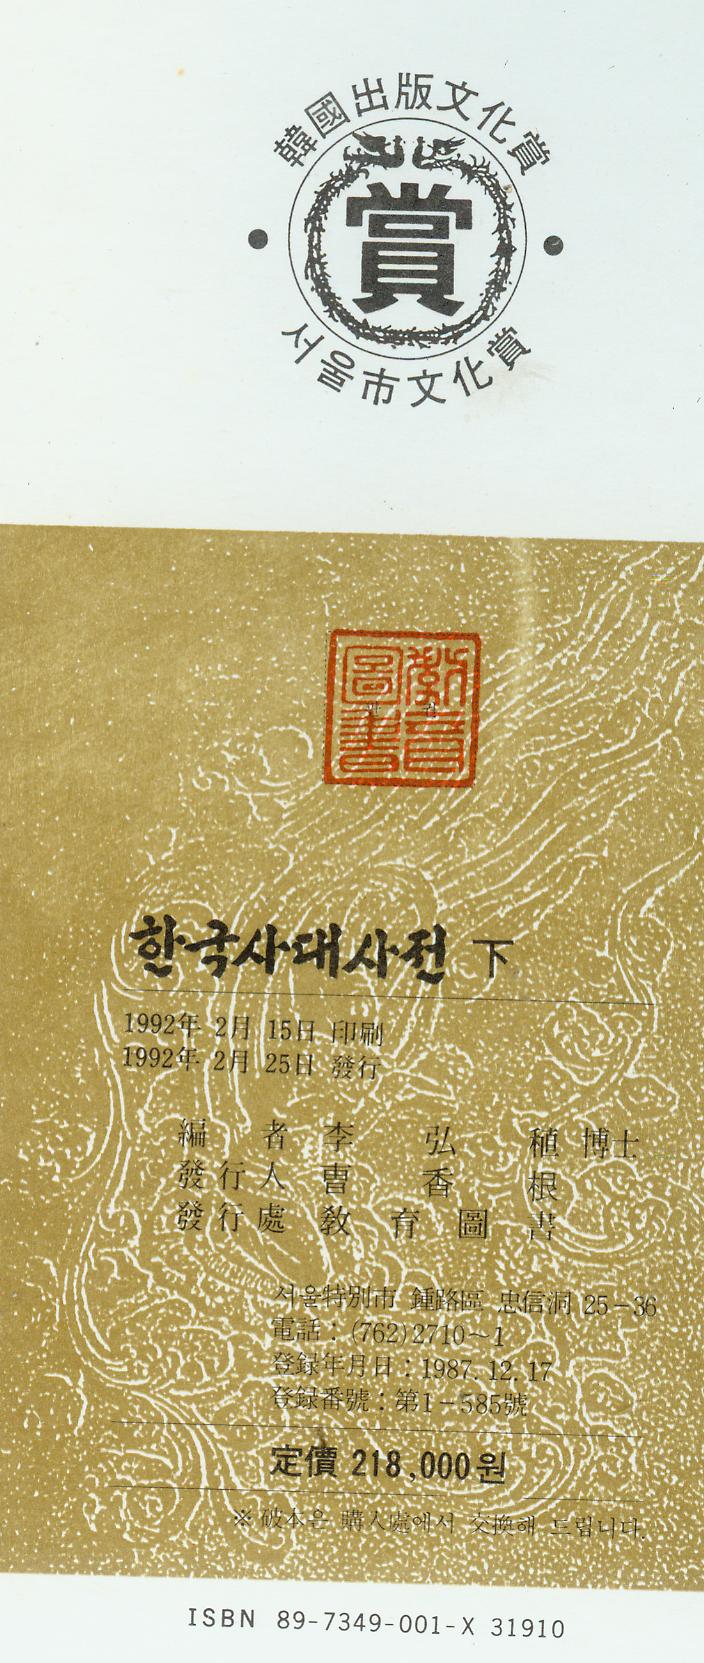 韓國出版文化賞
賞
서울市文化賞
敎育
圖書
한국사대사전 下
1992年 2月 15日 印刷
1992年 2月 25日 發行
編者 李弘稙 博士
發行人 曺香根
發行處 敎育圖書
서울特別市 鍾路區 忠信洞 25-36
電話 : (762)2710~1
登録年月日 : 1987. 12. 17
登録番號 : 第1-585號
定價 218,000원
※ 破本은 購入處에서 交換해 드립니다.
ISBN 89-7349-001-X 31910